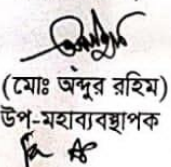 (মোঃ আব্দুর রহিম)
উপ-মহাব্যবস্থাপক